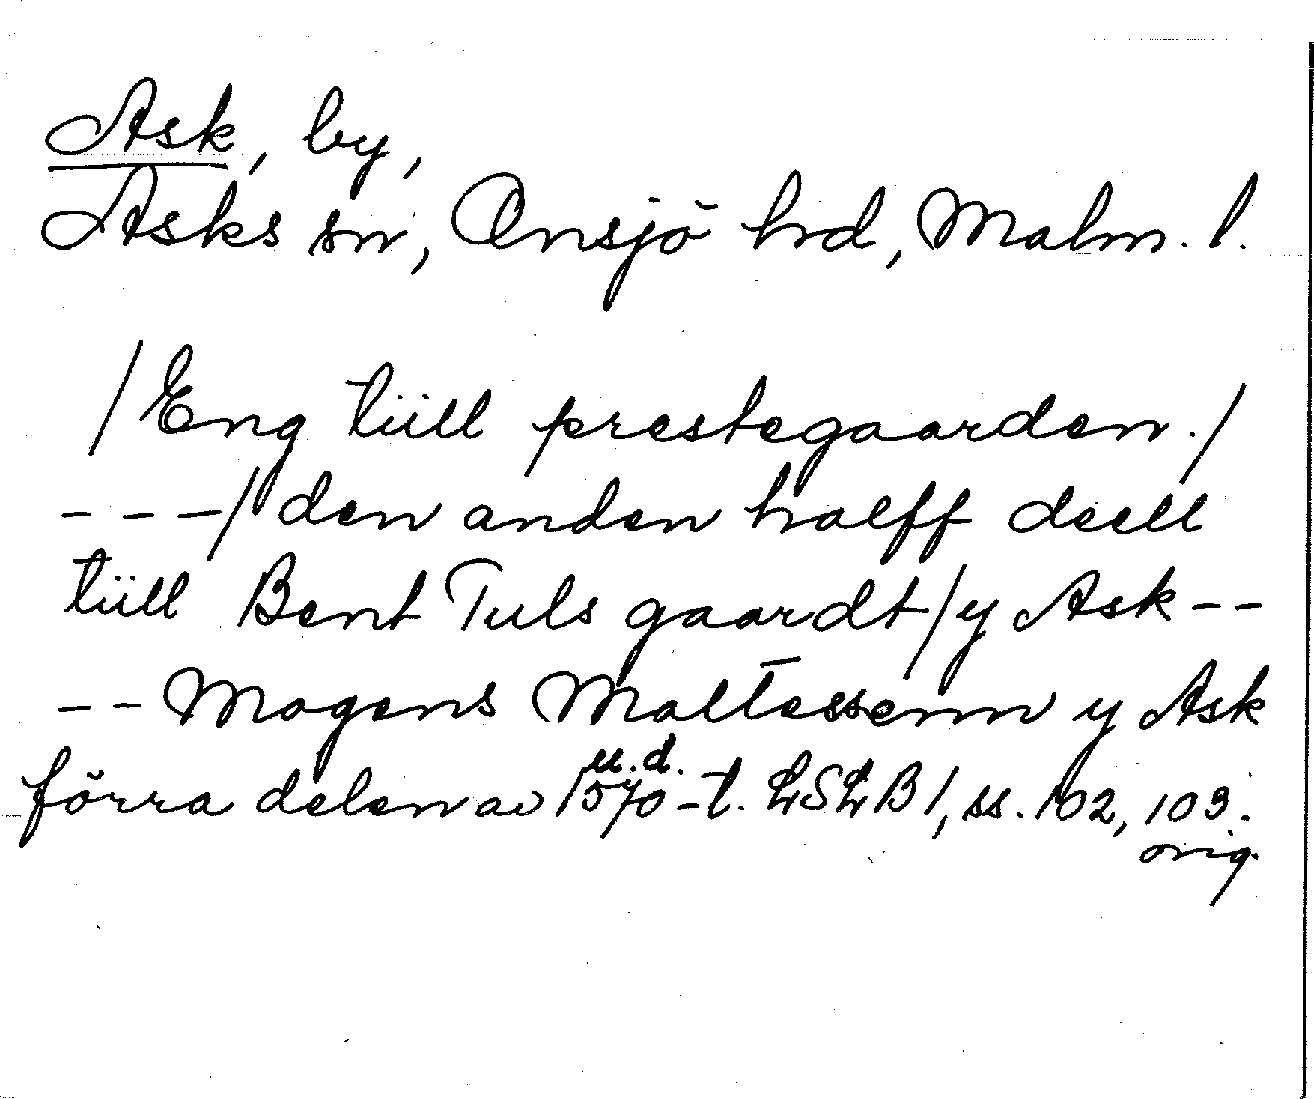 Ask, by,
Asks sn, Onsjö hrd, Malm. l.
/Eng tüll prestegaarden./
---/ den anden halff deell
tüll Bent Tuls gaardt/y Ask--
--Mogens Maltessenn y Ask
u.d.
förra delen av 1570-t. LSLB 1, ss. 102, 103.
orig.